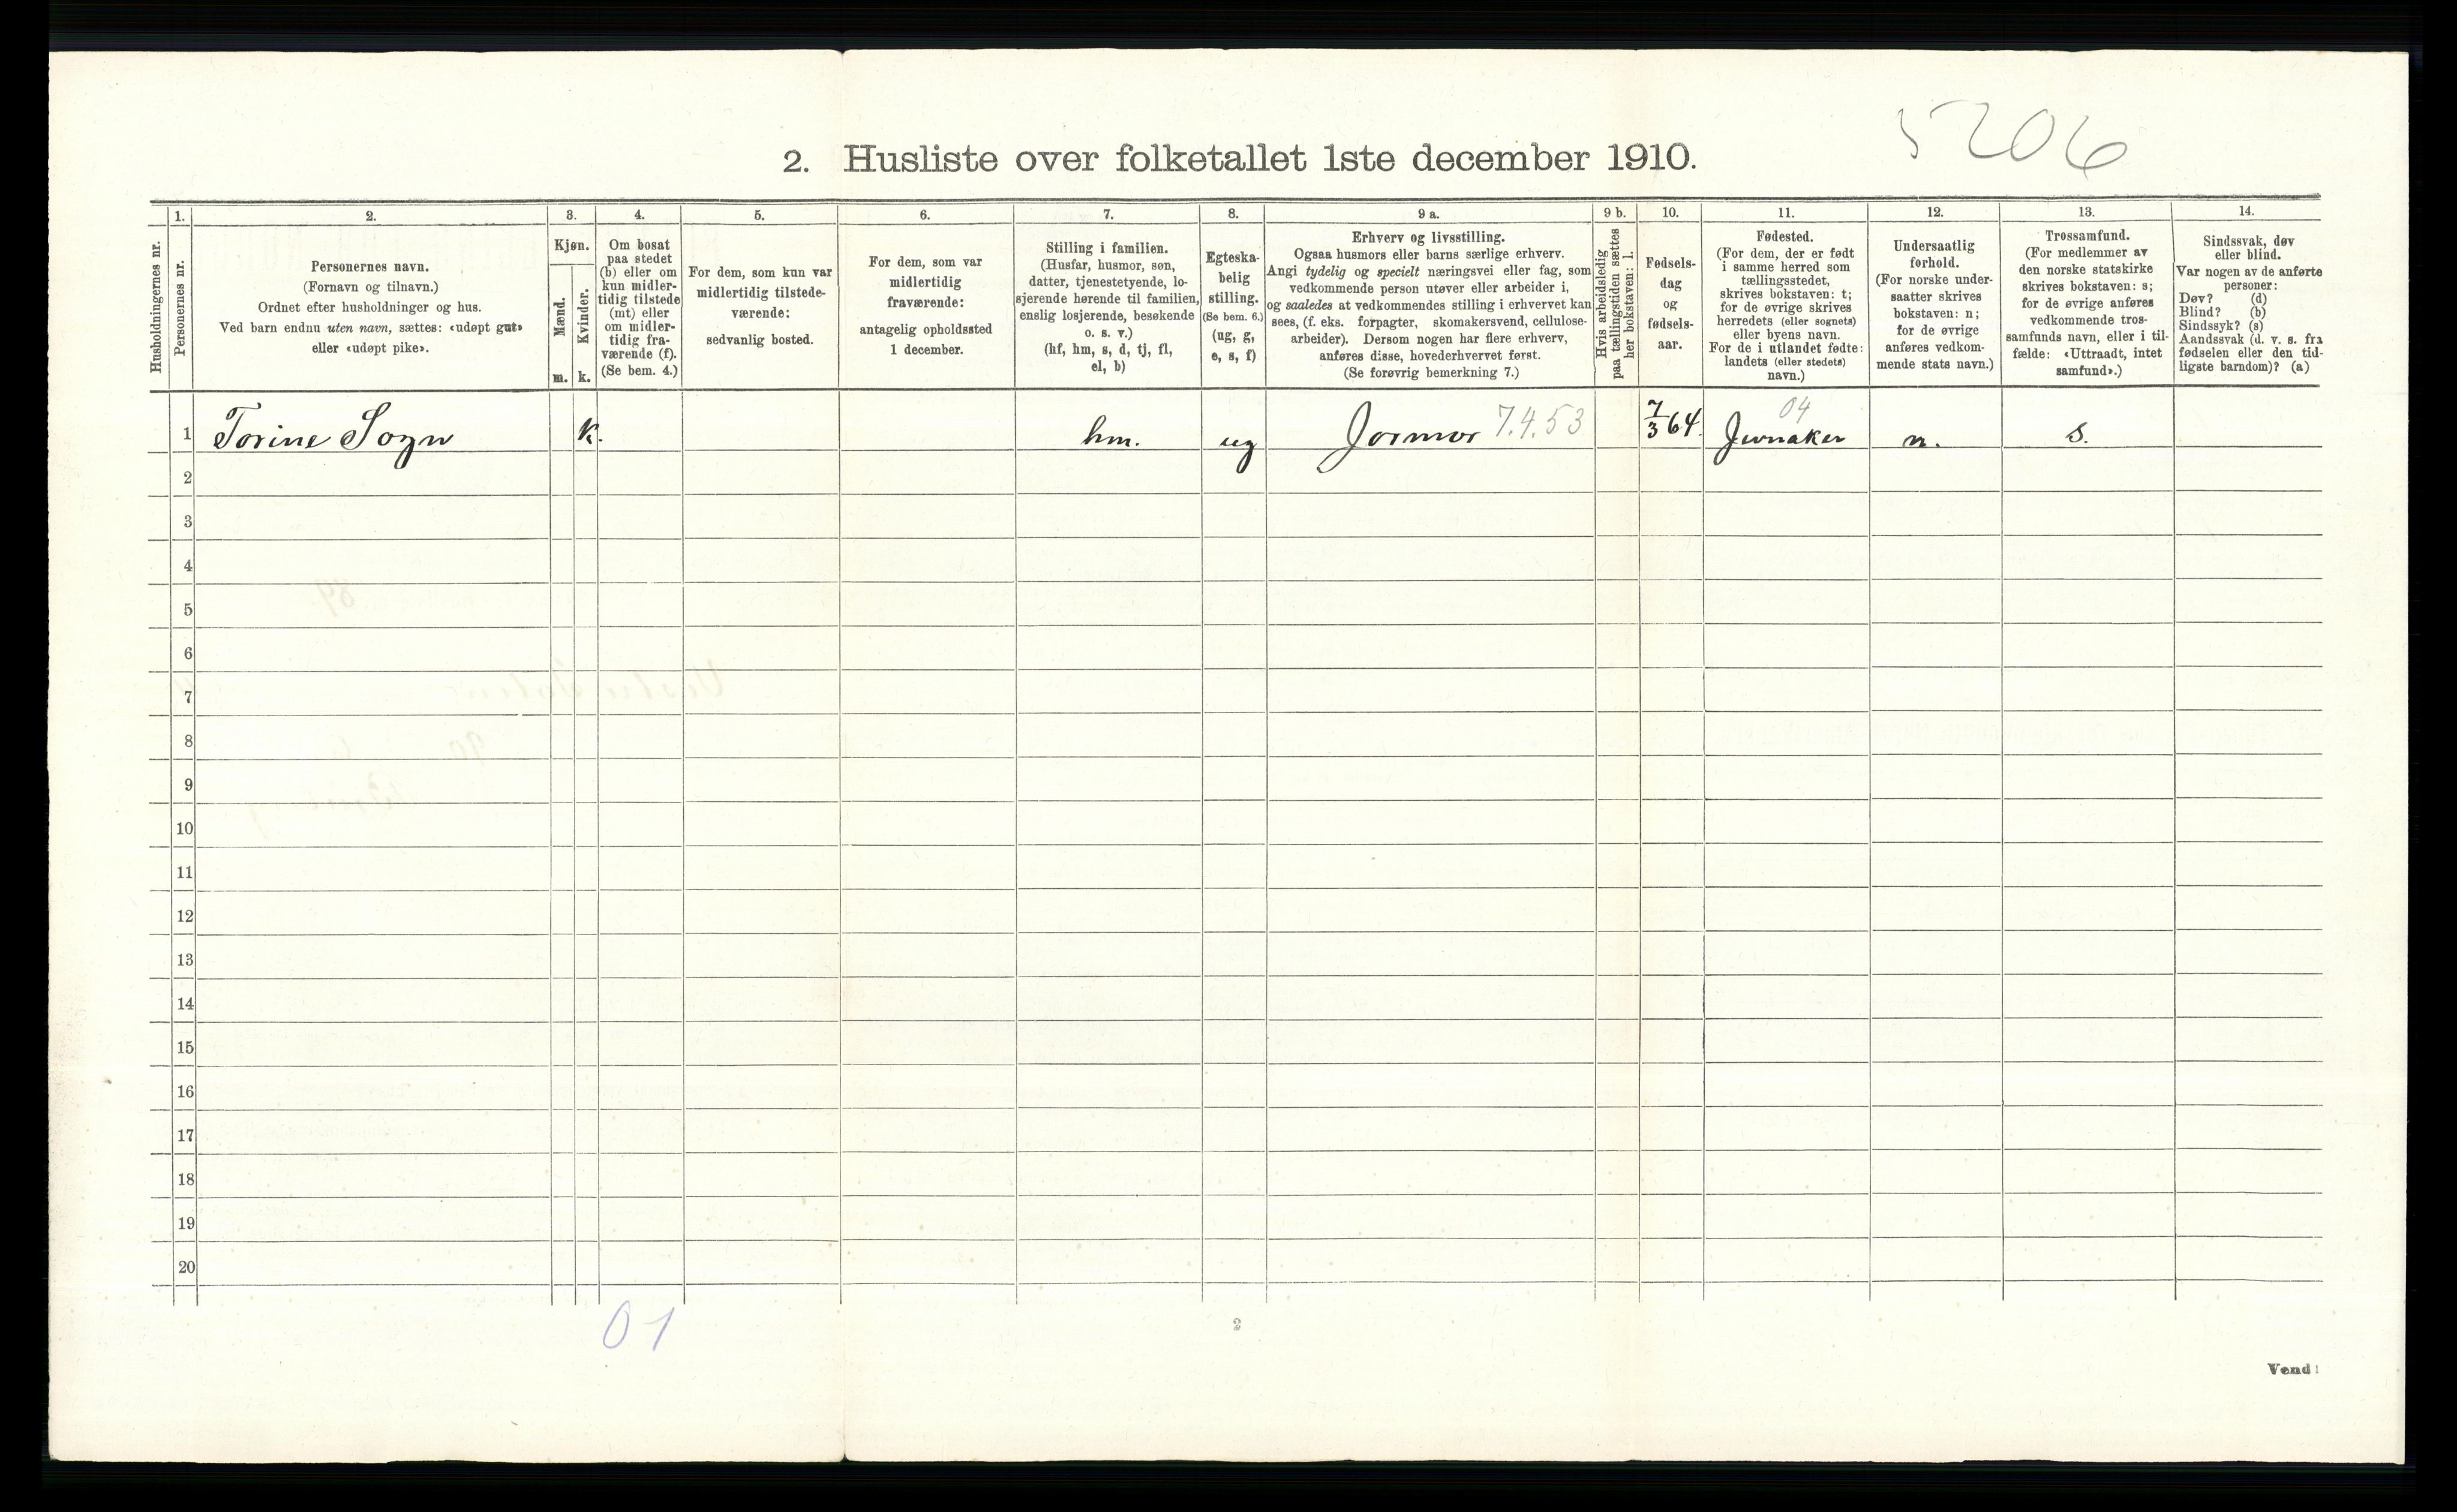 5206
2. Husliste over folketallet 1ste december 1910.
Husholdningernes nr.
1.
Personernes nr.
2.
Personernes navn.
(Fornavn og tilnavn.)
Ordnet efter husholdninger og hus.
Ved barn endnu uten navn, sættes: «udøpt gut»
eller «udøpt pike».
3.
Kjøn.
Mænd.
Kvinder.
m. k.
4.
Om bosat
paa stedet
(b) eller om
kun midler-
tidig tilstede
(mt) eller
om midler-
tidig fra-
værende (f).
(Se bem. 4.)
5.
For dem, som kun var
midlertidig tilstede-
værende:
sedvanlig bosted.
6.
For dem, som var
midlertidig
fraværende:
antagelig opholdssted
1 december.
7.
Stilling i familien.
(Husfar, husmor, søn,
datter, tjenestetyende, lo-
sjerende hørende til familien,
enslig losjerende, besøkende
o. s. v.)
(hf, hm, s, d, tj, fl,
el, b)
8.
Egteska-
belig
stilling.
(Se bem. 6.)
(ug, g,
e, s, f)
9 a.
Erhverv og livsstilling.
Ogsaa husmors eller barns særlige erhverv.
Angi tydelig og specielt næringsvei eller fag, som
vedkommende person utøver eller arbeider i,
og saaledes at vedkommendes stilling i erhvervet kan
sees, (f. eks. forpagter, skomakersvend, cellulose-
arbeider). Dersom nogen har flere erhverv,
anføres disse, hovederhvervet først.
(Se forøvrig bemerkning 7.)
9 b.
Hvis arbeidsledig
paa tællingstiden sættes
her bokstaven: l.
10.
Fødsels-
dag
og
fødsels-
aar.
11.
Fødested.
(For dem, der er født
i samme herred som
tællingsstedet,
skrives bokstaven: t;
for de øvrige skrives
herredets (eller sognets)
eller byens navn.
For de i utlandet fødte:
landets (eller stedets)
navn.)
12.
Undersaatlig
forhold.
(For norske under-
saatter skrives
bokstaven: n;
for de øvrige
anføres vedkom-
mende stats navn.)
13.
Trossamfund.
(For medlemmer av
den norske statskirke
skrives bokstaven: s;
for de øvrige anføres
vedkommende tros-
samfunds navn, eller i til-
fælde: «Uttraadt, intet
samfund».)
14.
Sindssvak, døv
eller blind.
Var nogen av de anførte
personer:
Døv? (d)
Blind? (b)
Sindssyk? (s)
Aandssvak (d. v. s. fra
fødselen eller den tid-
ligste barndom)? (a)
1 Torine Sogn k. hm. ug Jormor 7.4.53 7/3 64. 04 Jevnaker n. s.
2
3
4
5
6
7
8
9
10
11
12
13
14
15
16
17
18
19
20
01
2
Vend!